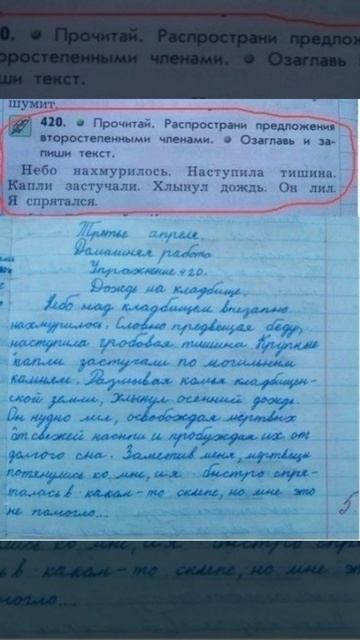 0. Прочитай. Распространи предлож
оростепенными членами. Озаглавь
ши текст.
шумит.
420. Прочитай. Распространи предложения
второстепенными членами. Озаглавь и за-
пиши текст.
Небо нахмурилось. Наступила тишина.
Капли застучали. Хлынул дождь. Он лил.
Я спрятался.
Третье апреля
Домашняя работа
Упражнение 420.
Дождь на кладбище.
Небо над кладбищем внезапно
нахмурилось. Словно предвещая беду,
наступила гробовая тишина. Крупные
капли застучали по могильным
камням. Размывая комья кладбищен-
ской земли, хлынул осенний дождь.
Он нудно лил, освобождая мёртвых
от свежей насыпи и пробуждая их от
долгого сна. Заметив меня, мертвецы
потянулись ко мне, и я быстро спря-
талась в каком-то склепе, но мне это
не помогло...
5
лись ко мне, и я быстро спря
ь в каком-то склепе, но мне э
омогло...